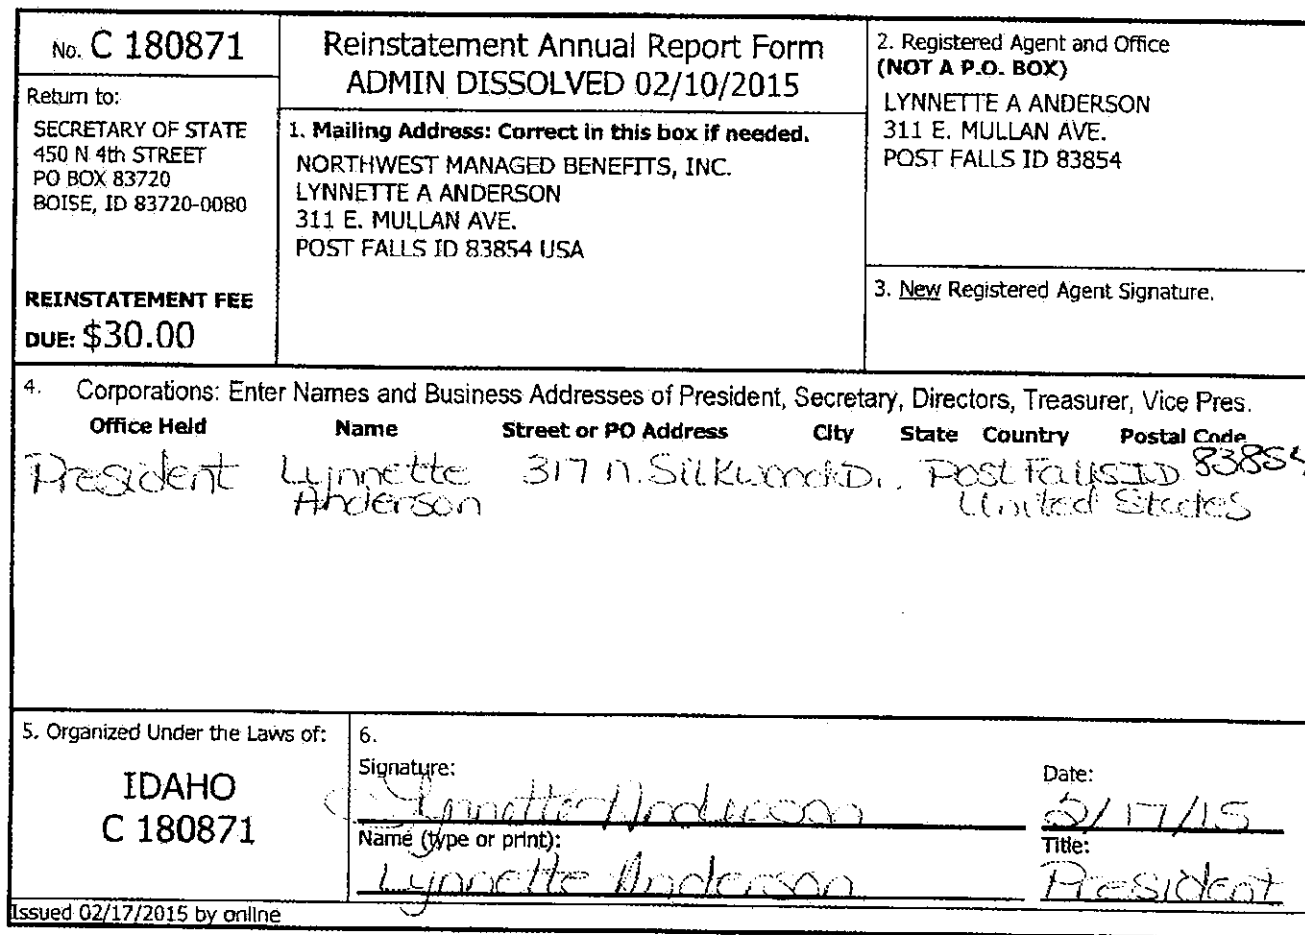 No. C 180871
Return to:
SECRETARY OF STATE
450 N 4th STREET
PO BOX 83720
BOISE, ID 83720-0080
REINSTATEMENT FEE
DUE: $30.00
Reinstatement Annual Report Form
ADMIN DISSOLVED 02/10/2015
1. Mailing Address: Correct in this box if needed.
NORTHWEST MANAGED BENEFITS, INC.
LYNNETTE A ANDERSON
311 E. MULLAN AVE.
POST FALLS ID 83854 USA
2. Registered Agent and Office
(NOT A P.O. BOX)
LYNNETTE A ANDERSON
311 E. MULLAN AVE.
POST FALLS ID 83854
3. New Registered Agent Signature.
4. Corporations: Enter Names and Business Addresses of President, Secretary, Directors, Treasurer, Vice Pres.
Office Held Name Street or PO Address City State Country Postal Code
President Lynnette 317 N. Post Falls ID 83854
Anderson United States
5. Organized Under the Laws of:
IDAHO
C 180871
6.
Signature:
Lynnette Anderson
Date:
2/17/15
Name (type or print):
Lynnette Anderson
Title:
President
Issued 02/17/2015 by online